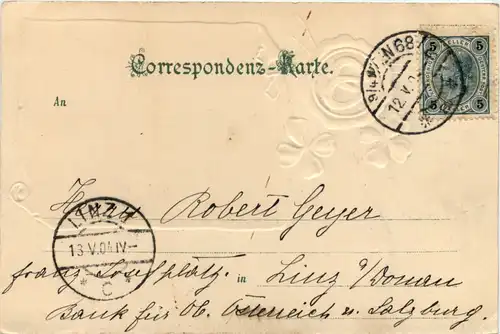 Correspondenz-Karte.
An
5 5
5 5
12.V.0
Herrn Robert Geyer
LINZ 1
13.V.04.IV-
* C *
franz Josefplatz. in Linz / Donau
Bank für Ob. Österreich u. Salzburg.